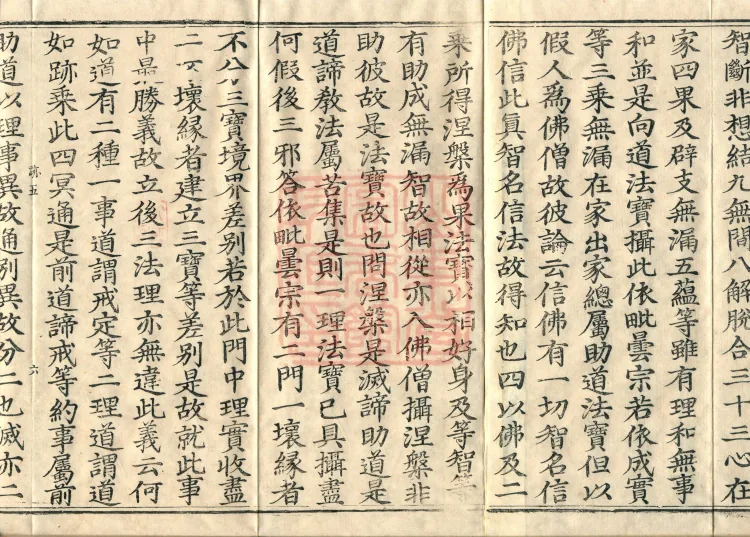 智斷非想結九無間八解脫合三十三心在
家四果及辟支無漏五蘊等雖有理和無事
和並是向道法寶攝此依毗曇宗若依成實
等三乘無漏在家出家總屬助道法寶但以
假人為佛僧故彼論云信佛有一切智名信
佛信此真智名信法故得知也四以佛及二
乘所得涅槃為果法寶以相好身及等智等
有助成無漏智故相從亦入佛僧攝涅槃非
助彼故是法寶故也問涅槃是滅諦助道是
道諦教法屬苦集是則一理法寶已具攝盡
何假後三邪答依毗曇宗有二門一壞緣者
不公三寶境界差別若於此門中理實收盡
二不壞緣者建立三寶等差別是故就此事
中最勝義故立後三法理亦無違此義云何
如道有二種一事道謂戒定等二理道謂道
如跡乘此四冥通是前道諦戒等約事屬前
助道以理事異故通別異故分二也滅亦二